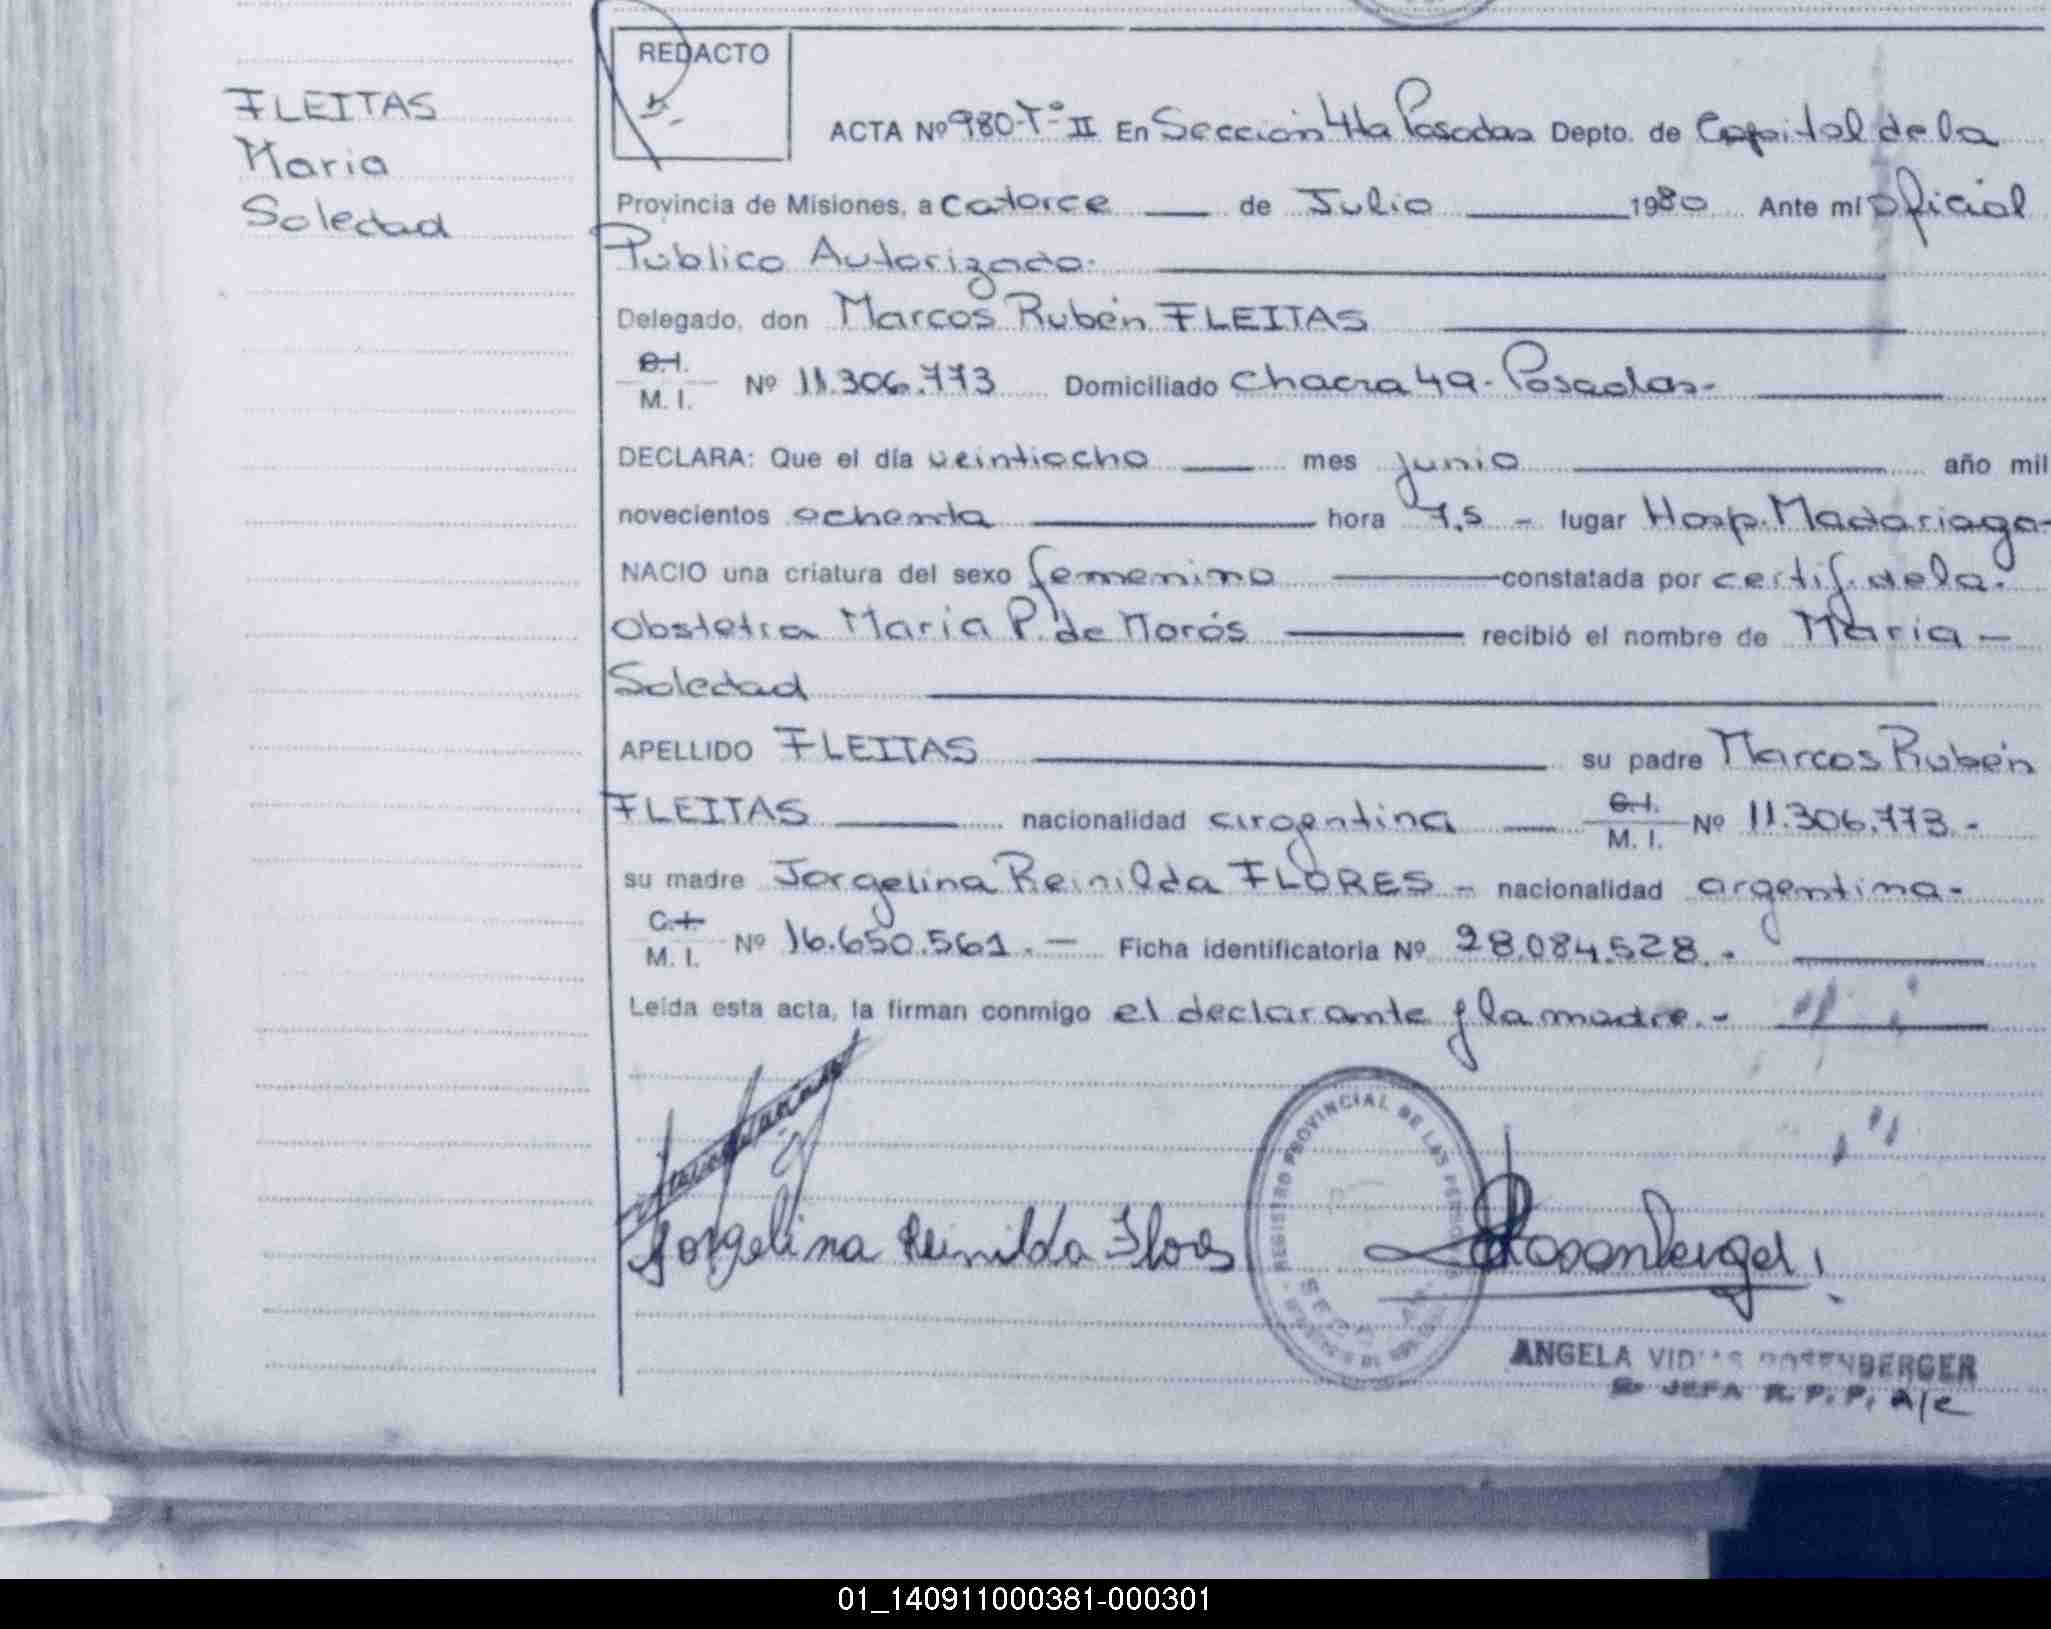 FLEITAS
Maria
Soledad
REDACTO
ACTA Nº 980-Tº II En Sección 4ta Posadas Depto. de Capital de la
Provincia de Misiones, a catorce de Julio 1980 Ante mí Oficial
Público Autorizado.
Delegado, don Marcos Rubén FLEITAS
C.I.
M. I. Nº 11.306.773 Domiciliado Chacra 49 - Posadas-
DECLARA: Que el día veintiocho mes junio año mil
novecientos ochenta hora 7,5 - lugar Hosp. Madariaga-
NACIO una criatura del sexo femenino constatada por certif. de la
obstetra Maria P. de Morós recibió el nombre de Maria -
Soledad
APELLIDO FLEITAS su padre Marcos Rubén
FLEITAS nacionalidad argentina C.I.
M. I. Nº 11.306.773.-
su madre Jorgelina Reinilda FLORES - nacionalidad argentina-
C.I.
M. I. Nº 16.650.561.- Ficha identificatoria Nº 28.084.528.-
Leída esta acta, la firman conmigo el declarante y la madre.-
Jorgelina Reinilda Flores
REGISTRO PROVINCIAL DE LAS PERSONAS
Rosenberger
ANGELA ROSENBERGER
JEFA R. P. P. A/C
01_140911000381-000301